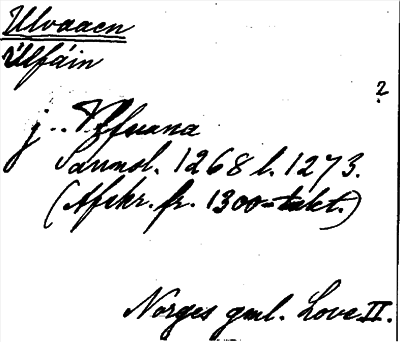 Ulvaaen
Úlfáin
?
j ..
Sannol. 1268 l. 1273.
(Afskr. fr. 1300-talet.)
Norges gml. Love II.